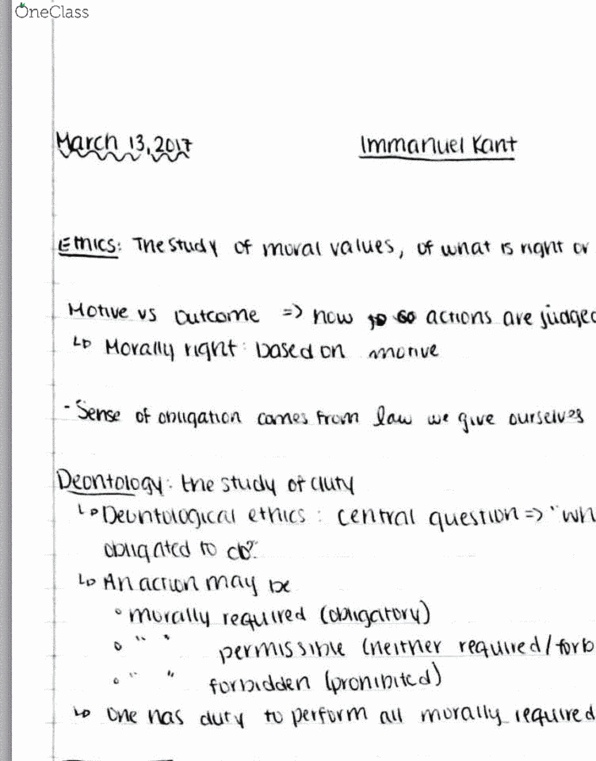 OneClass
March 13, 2017 Immanuel Kant
Ethics: The study of moral values, of what is right or
Motive vs Outcome => how actions are judged
↳ Morally right: based on motive
- Sense of obligation comes from law we give ourselves
Deontology: the study of duty
↳ Deontological ethics: central question => "wh
obligated to do?"
↳ An action may be
• morally required (obligatory)
• " " permissible (neither required/forb
• " " forbidden (prohibited)
↳ One has duty to perform all morally required